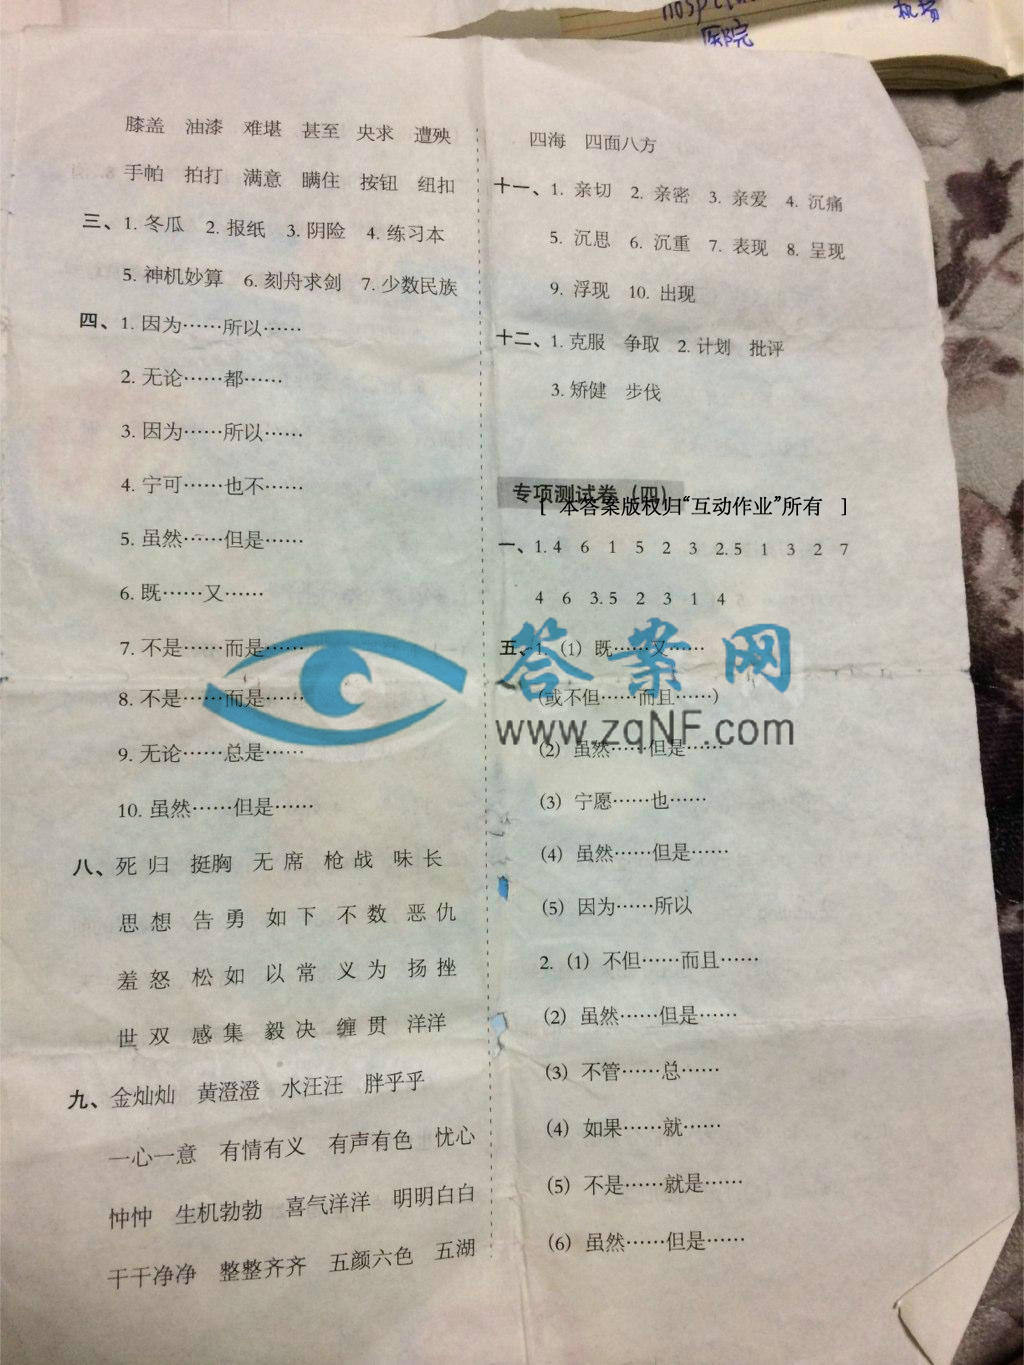 医院
机场
膝盖 油漆 难堪 甚至 央求 遭殃
手帕 拍打 满意 瞒住 按钮 纽扣
三、1. 冬瓜 2. 报纸 3. 阴险 4. 练习本
5. 神机妙算 6. 刻舟求剑 7. 少数民族
四、1. 因为……所以……
2. 无论……都……
3. 因为……所以……
4. 宁可……也不……
5. 虽然……但是……
6. 既……又……
7. 不是……而是……
8. 不是……而是……
9. 无论……总是……
10. 虽然……但是……
八、死 归 挺胸 无 席 枪 战 味 长
思 想 告 勇 如 下 不 数 恶 仇
羞 怒 松 如 以 常 义 为 扬 挫
世 双 感 集 毅 决 缠 贯 洋洋
九、金灿灿 黄澄澄 水汪汪 胖乎乎
一心一意 有情有义 有声有色 忧心
忡忡 生机勃勃 喜气洋洋 明明白白
干干净净 整整齐齐 五颜六色 五湖
四海 四面八方
十一、1. 亲切 2. 亲密 3. 亲爱 4. 沉痛
5. 沉思 6. 沉重 7. 表现 8. 呈现
9. 浮现 10. 出现
十二、1. 克服 争取 2. 计划 批评
3. 矫健 步伐
专项测试卷（四）
[ 本答案版权归“互动作业”所有 ]
一、1. 4 6 1 5 2 3 2. 5 1 3 2 7
4 6 3. 5 2 3 1 4
五、1.（1）既……又……
（或不但……而且……）
（2）虽然……但是……
（3）宁愿……也……
（4）虽然……但是……
（5）因为……所以
2.（1）不但……而且……
（2）虽然……但是……
（3）不管……总……
（4）如果……就……
（5）不是……就是……
（6）虽然……但是……
答案网
www.zqNF.com